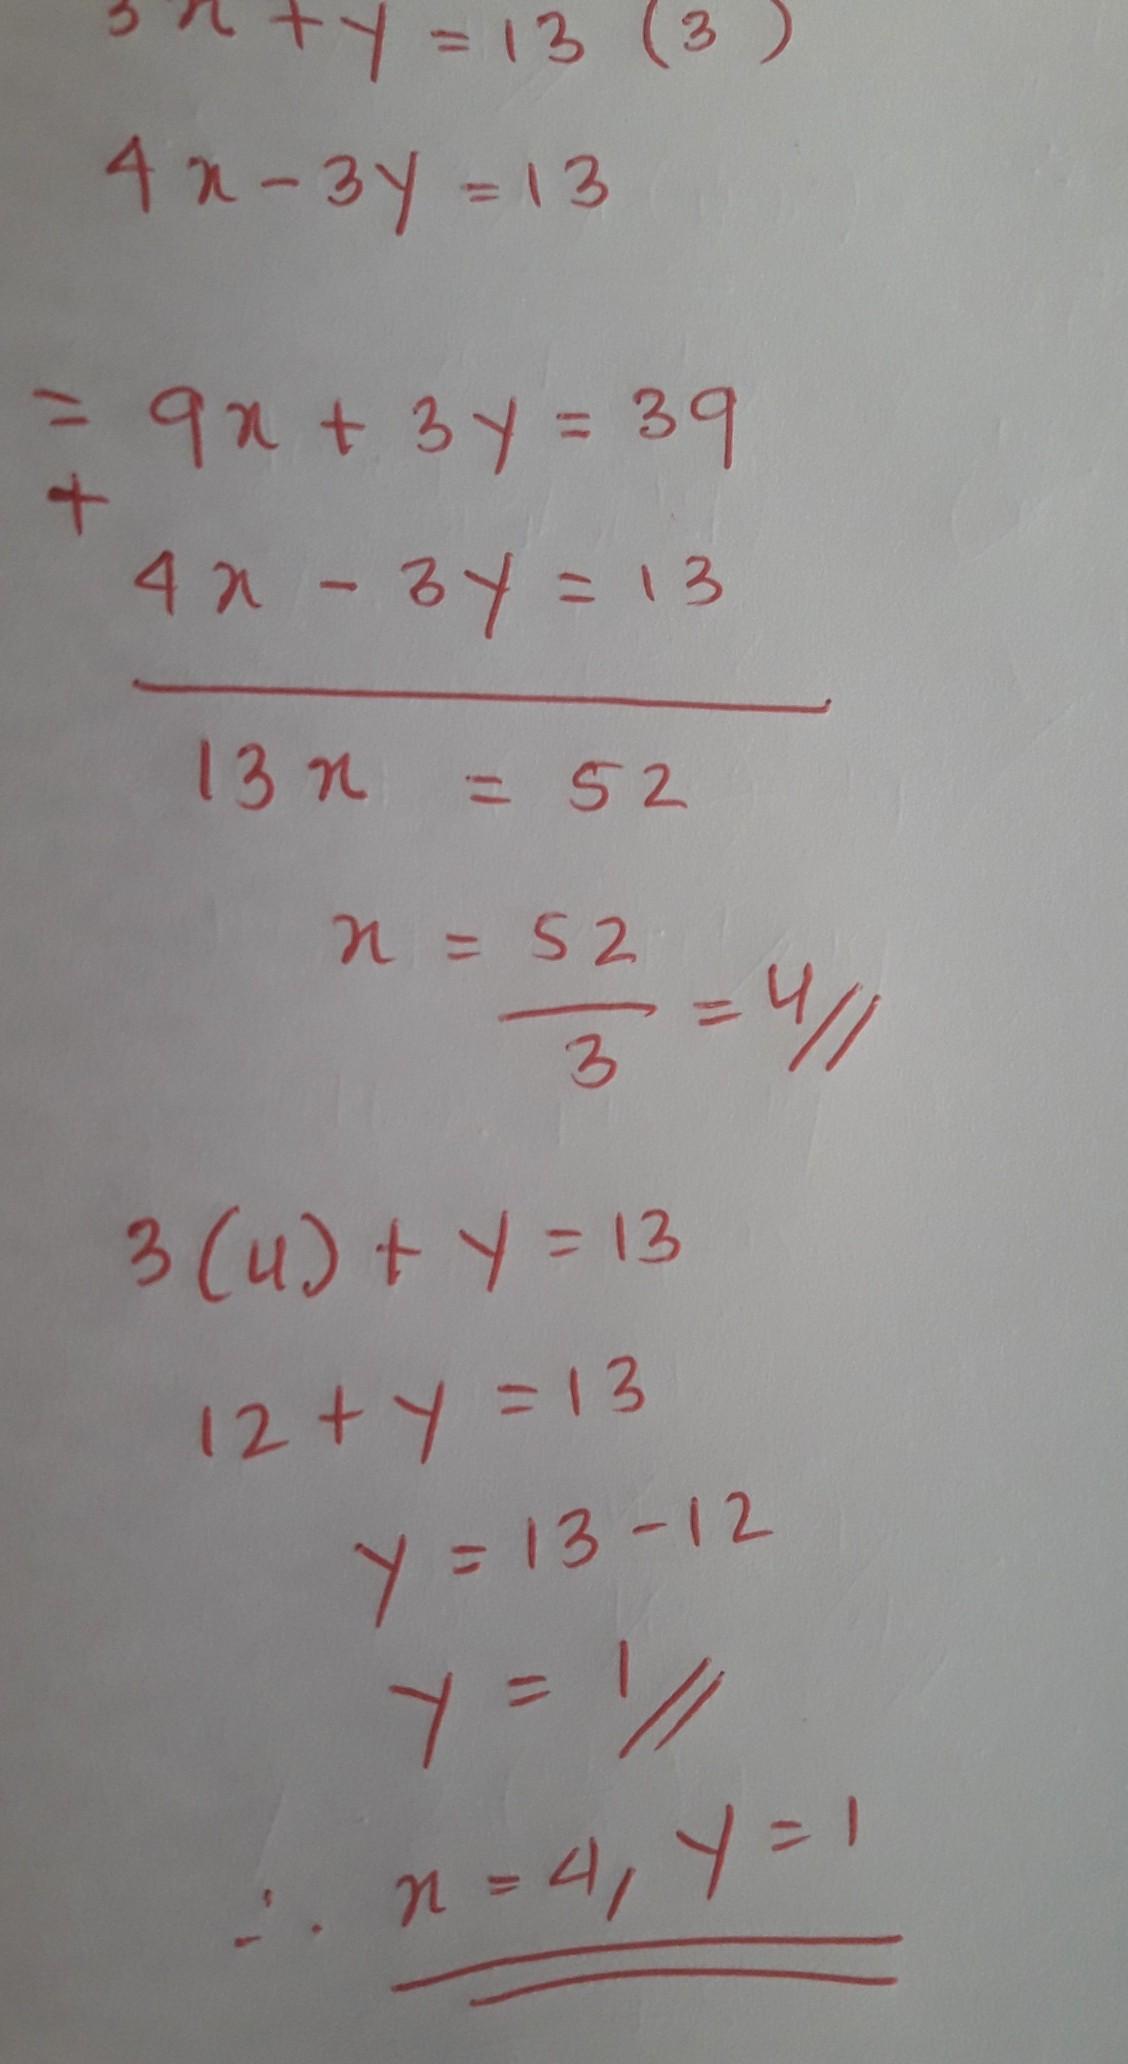 3x + y = 13 (3)
4x - 3y = 13
= 9x + 3y = 39
+
4x - 3y = 13
13x = 52
x = 52/3 = 4//
3(4) + y = 13
12 + y = 13
y = 13 - 12
y = 1//
∴ x = 4, y = 1